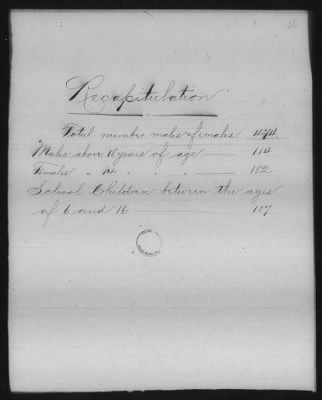 Recapitulation
Total number males & females 474
Males above 18 years of age 114
Females " 14 " " " 182
School Children between the ages
of 6 and 16 107